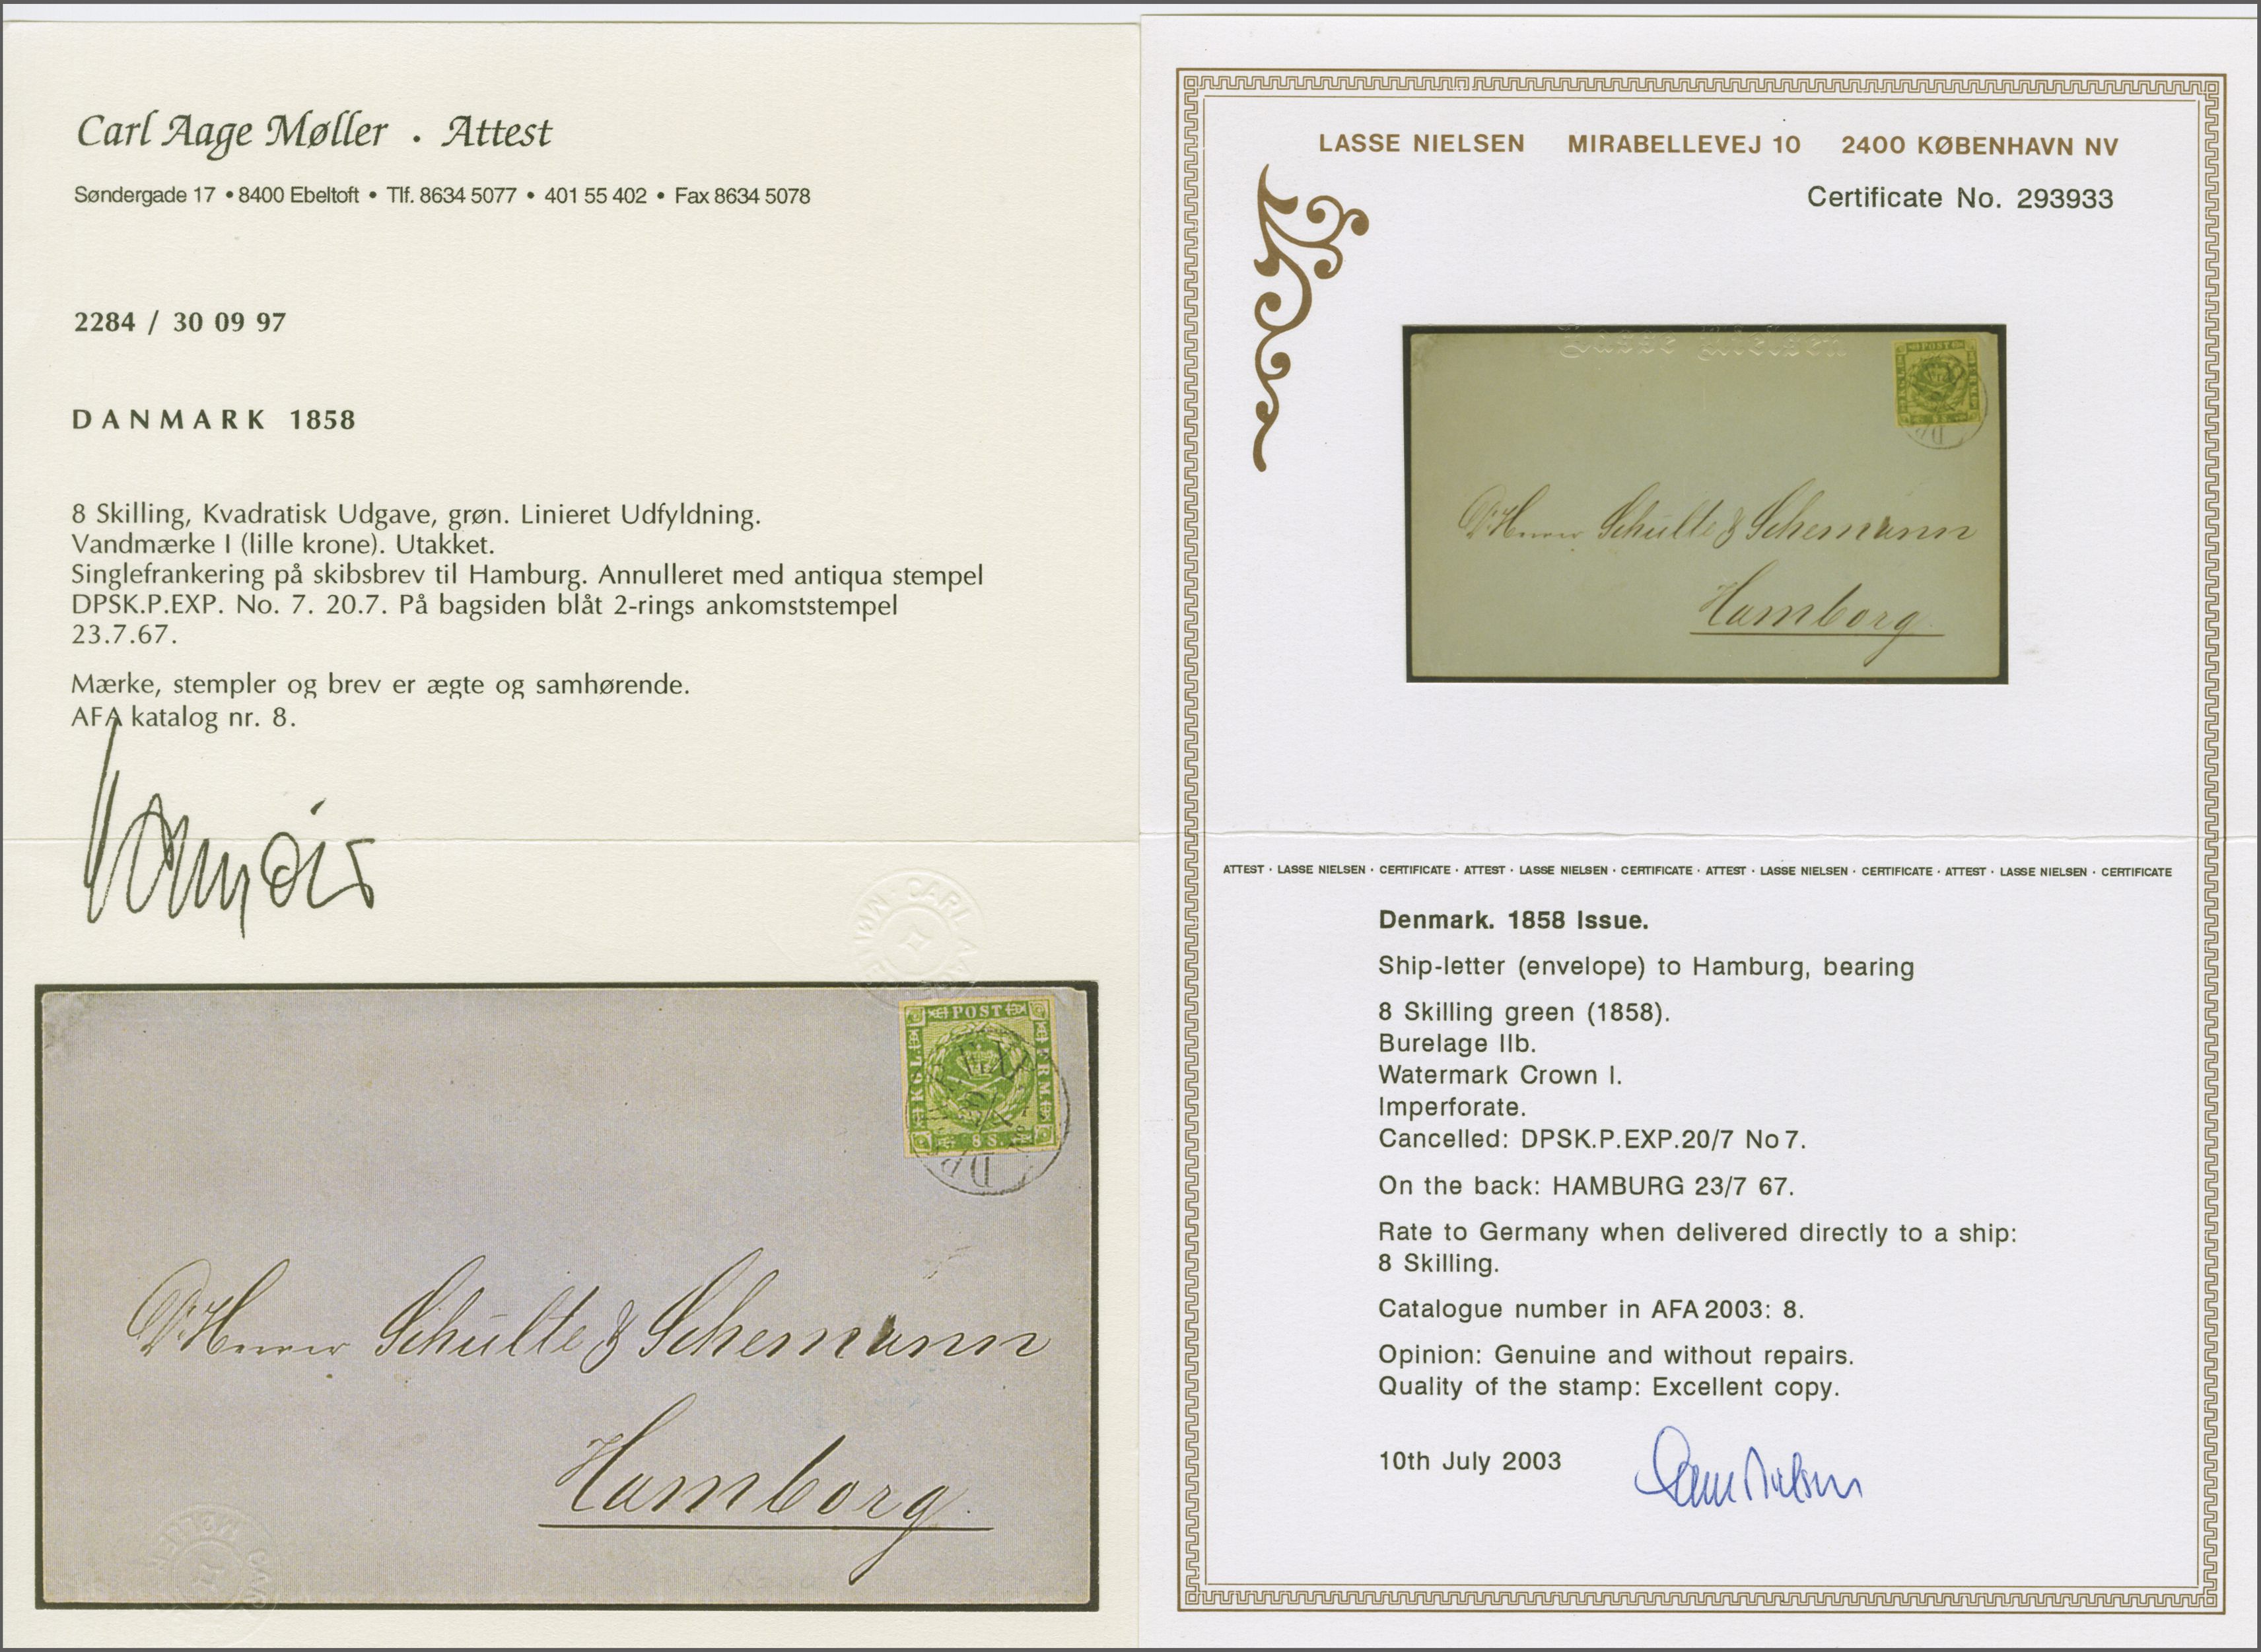 Carl Aage Møller · Attest
Søndergade 17 • 8400 Ebeltoft • Tlf. 8634 5077 • 401 55 402 • Fax 8634 5078
2284 / 30 09 97
DANMARK 1858
8 Skilling, Kvadratisk Udgave, grøn. Linieret Udfyldning.
Vandmærke I (lille krone). Utakket.
Singlefrankering på skibsbrev til Hamburg. Annulleret med antiqua stempel
DPSK.P.EXP. No. 7. 20.7. På bagsiden blåt 2-rings ankomststempel
23.7.67.
Mærke, stempler og brev er ægte og samhørende.
AFA katalog nr. 8.
CARL
POST
KGL
FRM
8 S.
DP
Schulte & Schemann
Hamborg
LASSE NIELSEN MIRABELLEVEJ 10 2400 KØBENHAVN NV
Certificate No. 293933
Lasse Nielsen
POST
DP
Schulte & Schemann
Hamborg
ATTEST · LASSE NIELSEN · CERTIFICATE · ATTEST · LASSE NIELSEN · CERTIFICATE · ATTEST · LASSE NIELSEN · CERTIFICATE · ATTEST · LASSE NIELSEN · CERTIFICATE
Denmark. 1858 Issue.
Ship-letter (envelope) to Hamburg, bearing
8 Skilling green (1858).
Burelage IIb.
Watermark Crown I.
Imperforate.
Cancelled: DPSK.P.EXP.20/7 No 7.
On the back: HAMBURG 23/7 67.
Rate to Germany when delivered directly to a ship:
8 Skilling.
Catalogue number in AFA 2003: 8.
Opinion: Genuine and without repairs.
Quality of the stamp: Excellent copy.
10th July 2003